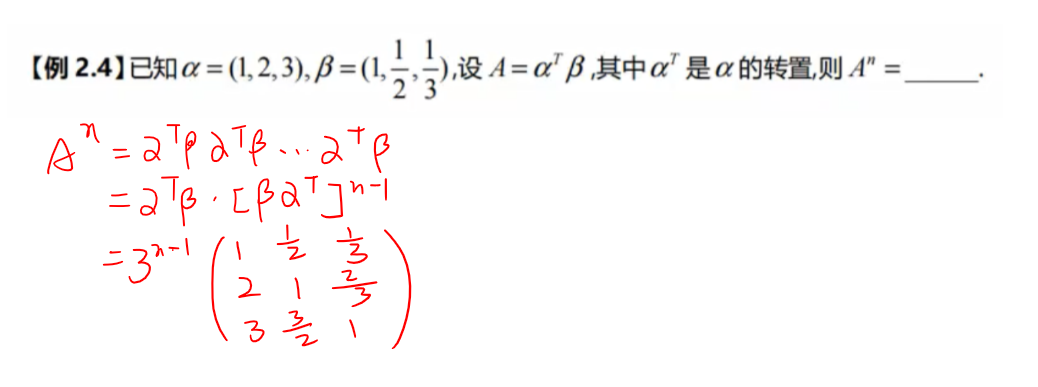 【例 2.4】已知 α = (1, 2, 3), β = (1, 1/2, 1/3), 设 A = α^T β ,其中 α^T 是 α 的转置,则 A^n = ______.
A^n = α^Tβ α^Tβ ... α^Tβ
= α^Tβ · [βα^T]^{n-1}
= 3^{n-1} ( 1 1/2 1/3
2 1 2/3
3 3/2 1 )